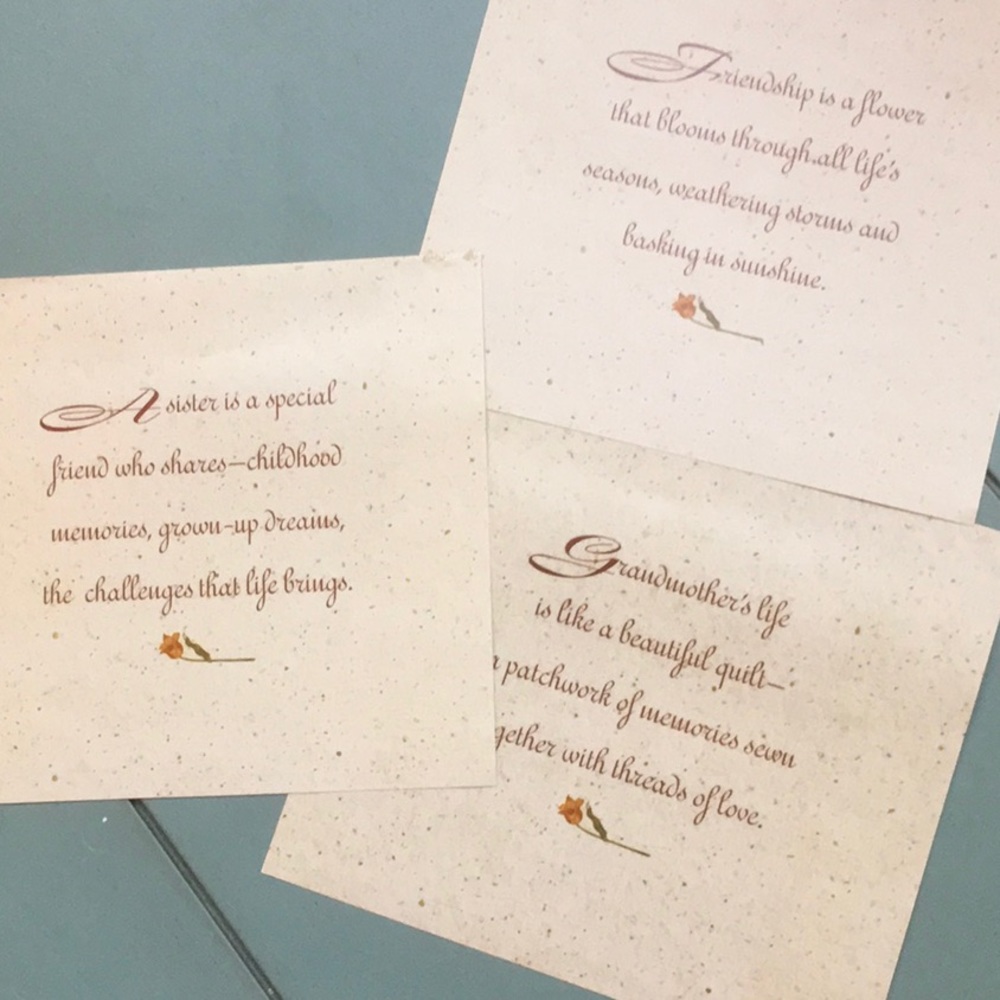 Friendship is a flower
that blooms through all life's
seasons, weathering storms and
basking in sunshine.
A sister is a special
friend who shares—childhood
memories, grown-up dreams,
the challenges that life brings.
Grandmother's life
is like a beautiful quilt—
patchwork of memories sewn
gether with threads of love.